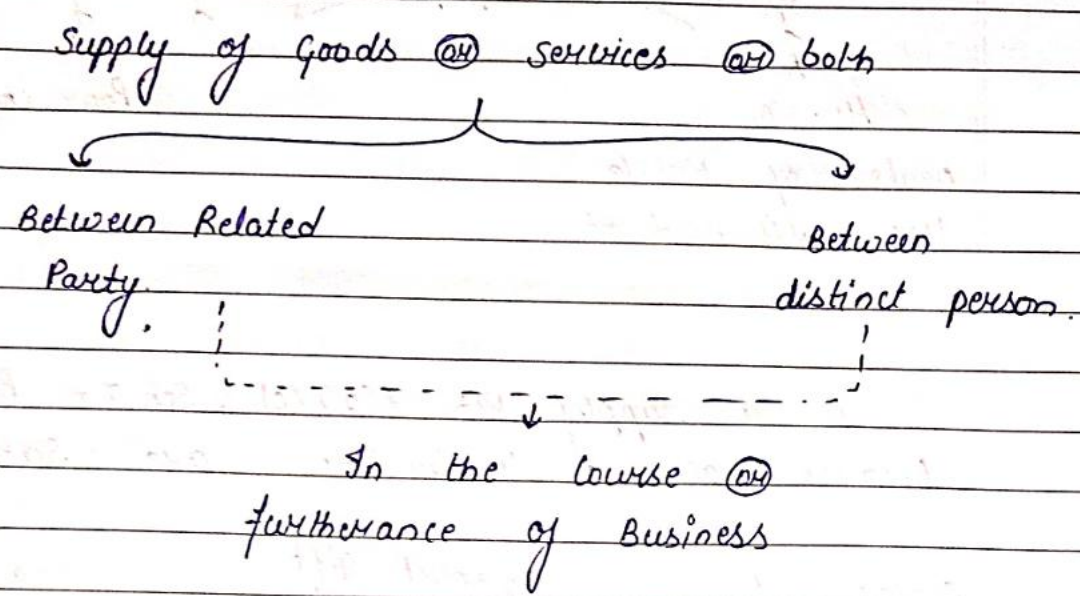 Supply of Goods or services or both
Between Related
Party.
Between
distinct person.
In the Course or
furtherance of Business